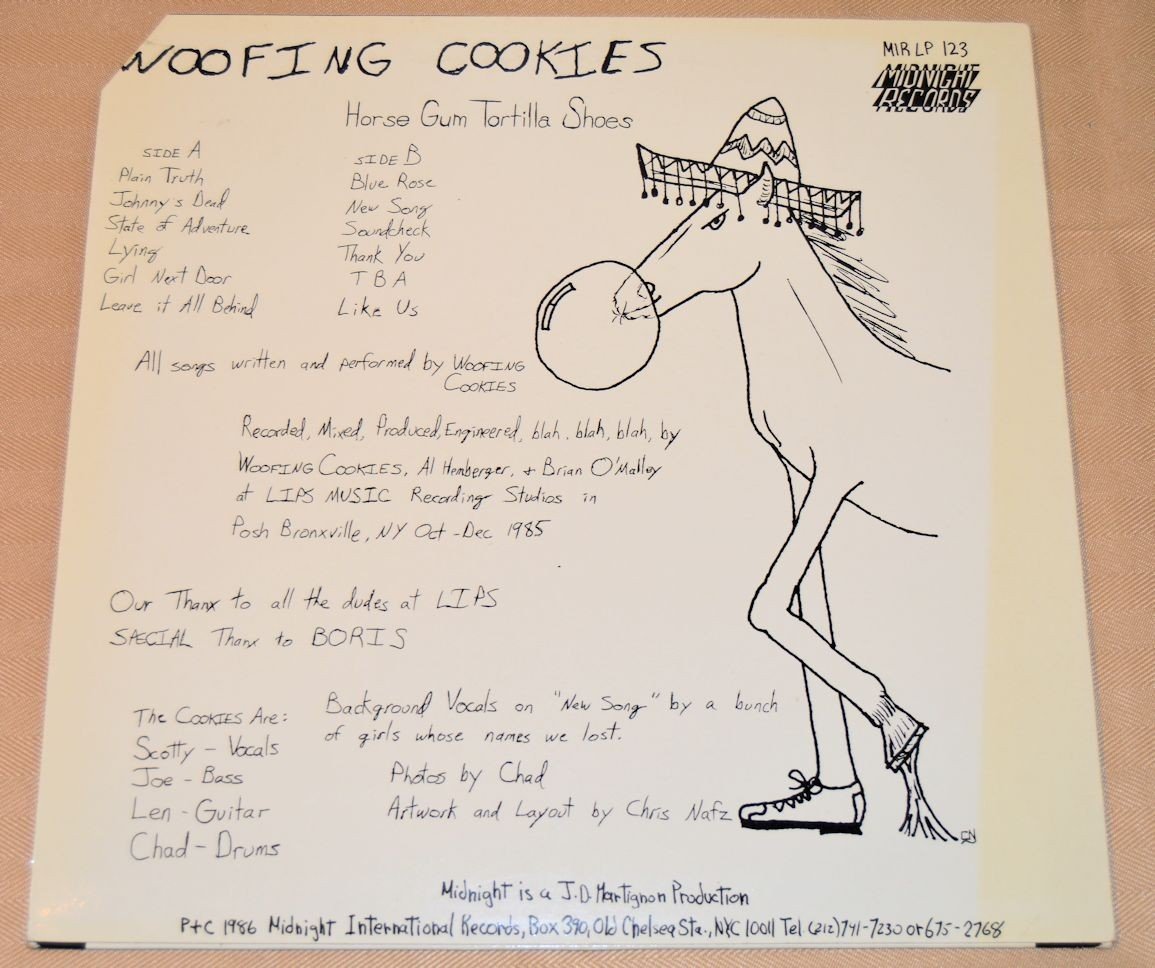 WOOFING COOKIES
MIR LP 123
MIDNIGHT
RECORDS
Horse Gum Tortilla Shoes
SIDE A
Plain Truth
Johnny's Dead
State of Adventure
Lying
Girl Next Door
Leave it All Behind
SIDE B
Blue Rose
New Song
Soundcheck
Thank You
TBA
Like Us
All songs written and performed by WOOFING
COOKIES
Recorded, Mixed, Produced, Engineered, blah. blah, blah, by
WOOFING COOKIES, Al Hemberger, + Brian O'Malley
at LIPS MUSIC Recording Studios in
Posh Bronxville, NY Oct-Dec 1985
Our Thanx to all the dudes at LIPS
SPECIAL Thanx to BORIS
The COOKIES Are:
Scotty - Vocals
Joe - Bass
Len - Guitar
Chad - Drums
Background Vocals on "New Song" by a bunch
of girls whose names we lost.
Photos by Chad
Artwork and Layout by Chris Nafz
CN
Midnight is a J.D. Martignon Production
P+C 1986 Midnight International Records, Box 390, Old Chelsea Sta., NYC 10011 Tel (212)741-7230 or 675-2768